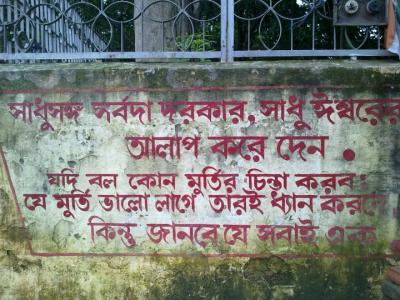 সাধুসঙ্গ সর্বদা দরকার, সাধু ঈশ্বরের
আলাপ করে দেন .
যদি বল কোন মুর্তির চিন্তা করব;
যে মুর্তি ভালো লাগে তারই ধ্যান করবে,
কিন্তু জানবে যে সবাই এক